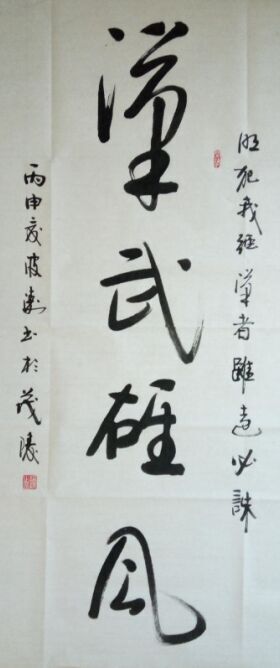 明犯我強漢者雖遠必誅
漢武雄風
丙申夏波書於茂陵